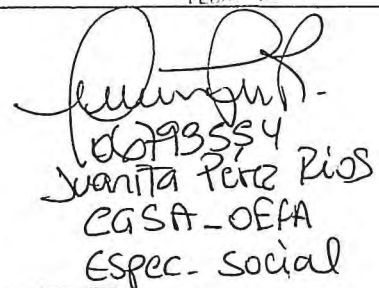 06793554
Juanita Pérez Rios
CGSA-OEFA
Espec. Social